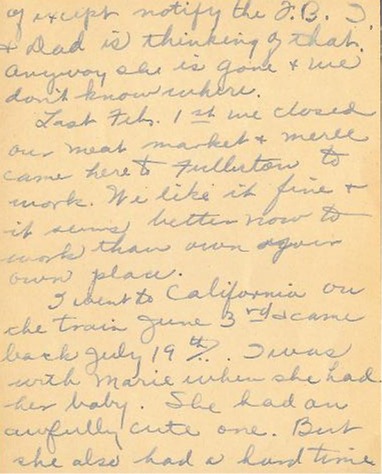 of except notify the F.B.I.
& Dad is thinking of that.
Anyway she is gone & we
don't know where.
Last Feb. 1st we closed
our meat market & Merle
came here to Fullerton to
work. We like it fine &
it seems better now to
work than own your
own place.
I went to California on
the train June 3rd & came
back July 19th. I was
with Marie when she had
her baby. She had an
awfully cute one. But
she also had a hard time